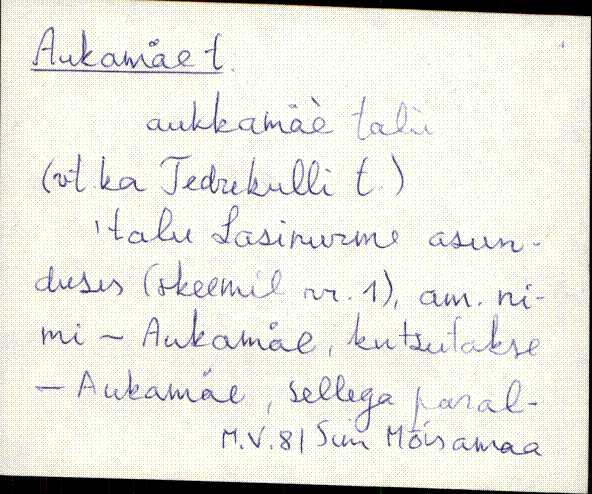 Aukamäe t.
aukkamäè talu
(vt. ka Tedrekulli t.)
talu Lasinurme asun-
duses (skeemil nr. 1), am. ni-
mi – Aukamäe, kutsutakse
– Aukamäe, sellega paral-
M.V. 81 Siin Mõisamaa